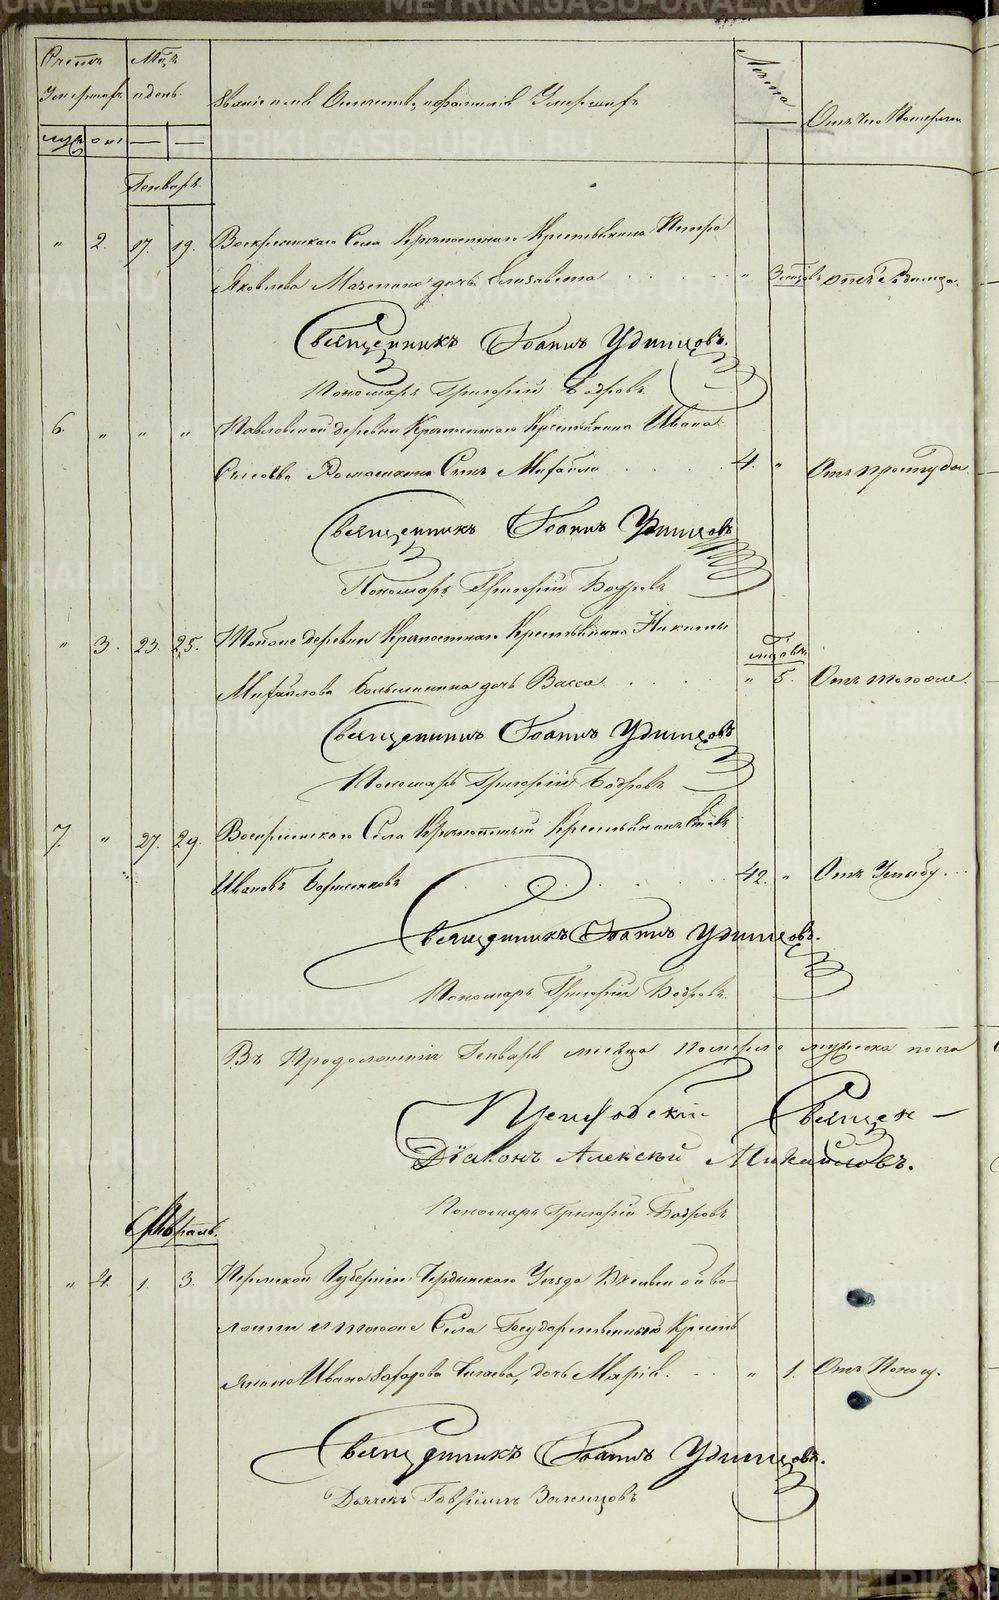 Счетъ Умершихъ
Мѣсяцъ и день
Званіе имя Отечество, и фамилія Умершихъ
Лѣта
Отъ чего Померли
муж
Генварь
" 2. 17. 19. Воскресенскаго Села Крѣпостнаго Крестьянина Петра
Яковлева дочь Елизавета " отъ Родимца.
Священникъ Іоаннъ Удинцовъ.
Пономарь Григорій Бобровъ
6. " " " Павловской деревни Крѣпостнаго Крестьянина Ивана
Сынъ Михайло 4. " Отъ простуды
Священникъ Іоаннъ Удинцовъ
Пономарь Григорій Бобровъ
" 3. 23. 25. Тойже деревни Крѣпостнаго Крестьянина Никиты
Михайлова дочь Васса " 5. Отъ тогоже.
Священникъ Іоаннъ Удинцовъ
Пономарь Григорій Бобровъ
7. " 27. 29. Воскресенскаго Села Крѣпостный Крестьянинъ
Ивановъ 42. "
Священникъ Іоаннъ Удинцовъ.
Пономарь Григорій Бобровъ
Въ Продолженіи Генваря месяца померло мужеска пола
Приходскій Священ-
Діаконъ Алексѣй Михайловъ.
Пономарь Григорій Бобровъ
Февраль.
" 4. 1. 3. Пермской Губерніи Чердынскаго Уезда во-
лости и тогоже Села Государственнаго Кресть
янина Ивана дочь Марія " 1. Отъ Поносу.
Священникъ Іоаннъ Удинцовъ.
Дьячекъ Гавріилъ
METRIKI.GASO-URAL.RU